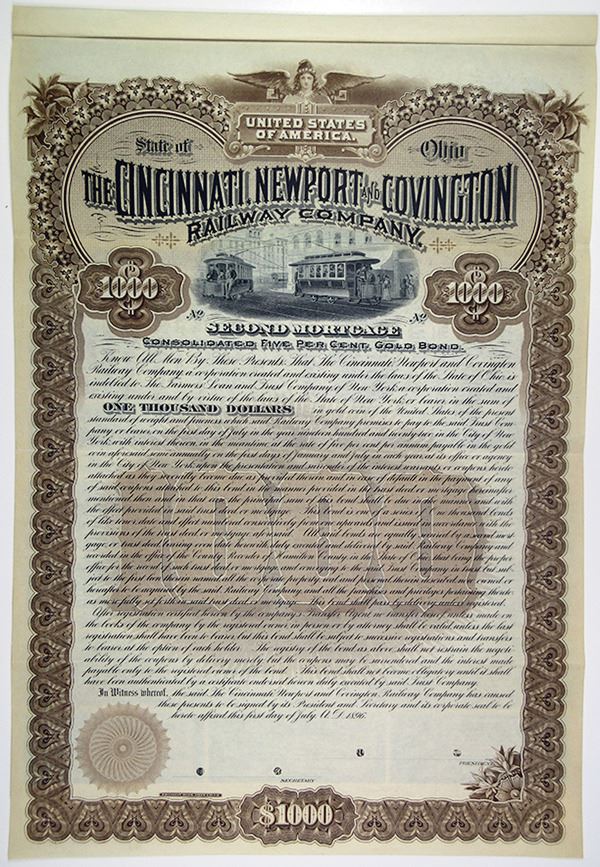 UNITED STATES
OF AMERICA.
State of Ohio
THE CINCINNATI, NEWPORT AND COVINGTON
RAILWAY COMPANY.
$1000 $1000
No No
SECOND MORTGAGE
CONSOLIDATED FIVE PER CENT. GOLD BOND.
Know All Men By These Presents, That The Cincinnati Newport and Covington
Railway Company, a corporation created and existing under the laws of the State of Ohio is
indebted to The Farmers' Loan and Trust Company of New York a corporation created and
existing under and by virtue of the laws of the State of New York or bearer in the sum of
ONE THOUSAND DOLLARS in gold coin of the United States of the present
standard of weight and fineness which said Railway Company promises to pay to the said Trust Com-
pany or bearer, on the first day of July in the year nineteen hundred and twenty two in the City of New
York with interest thereon in the meantime at the rate of five per cent per annum payable in the gold
coin aforesaid semi annually on the first days of January and July in each year, at its office or agency
in the City of New York upon the presentation and surrender of the interest warrants or coupons hereto
attached as they severally become due as provided therein and in case of default in the payment of any
of said coupons attached to this bond in the manner provided in the trust deed or mortgage hereinafter
mentioned then and in that case the principal sum of this bond shall become due in the manner and with
the effect provided in said trust deed or mortgage. This bond is one of a series of One thousand bonds
of like tenor, date and effect numbered consecutively from one upward and issued in accordance with the
provisions of the trust deed or mortgage aforesaid. All said bonds are equally secured by a second mort-
gage, or trust deed, bearing even date herewith duly executed and delivered by said Railway Company and
recorded in the office of the County Recorder of Hamilton County in the State of Ohio that being the proper
office for the record of such trust deed or mortgage and conveying to the said Trust Company in trust but sub-
ject to the first lien therein named, all the corporate property real and personal therein described now owned or
hereafter to be acquired by the said Railway Company, and all the franchises and privileges pertaining thereto
as more fully set forth in said trust deed or mortgage. This bond shall pass by delivery unless registered.
After registration certified hereon by the company's Transfer Agent no transfer thereof unless made on
the books of the company by the registered owner, in person or by attorney shall be valid, unless the last
registration shall have been to bearer, but this bond shall be subject to successive registrations and transfers
to bearer at the option of each holder. The registry of the bond as above shall not restrain the negoti-
ability of the coupons by delivery merely but the coupons may be surrendered and the interest made
payable only to the registered owner of the bond. This bond shall not become obligatory until it shall
have been authenticated by a certificate endorsed hereon duly executed by said Trust Company.
In Witness whereof, the said The Cincinnati Newport and Covington Railway Company has caused
these presents to be signed by its President and Secretary and its corporate seal to be
hereto affixed, this first day of July A.D. 1896.
PRESIDENT
SECRETARY
$1000